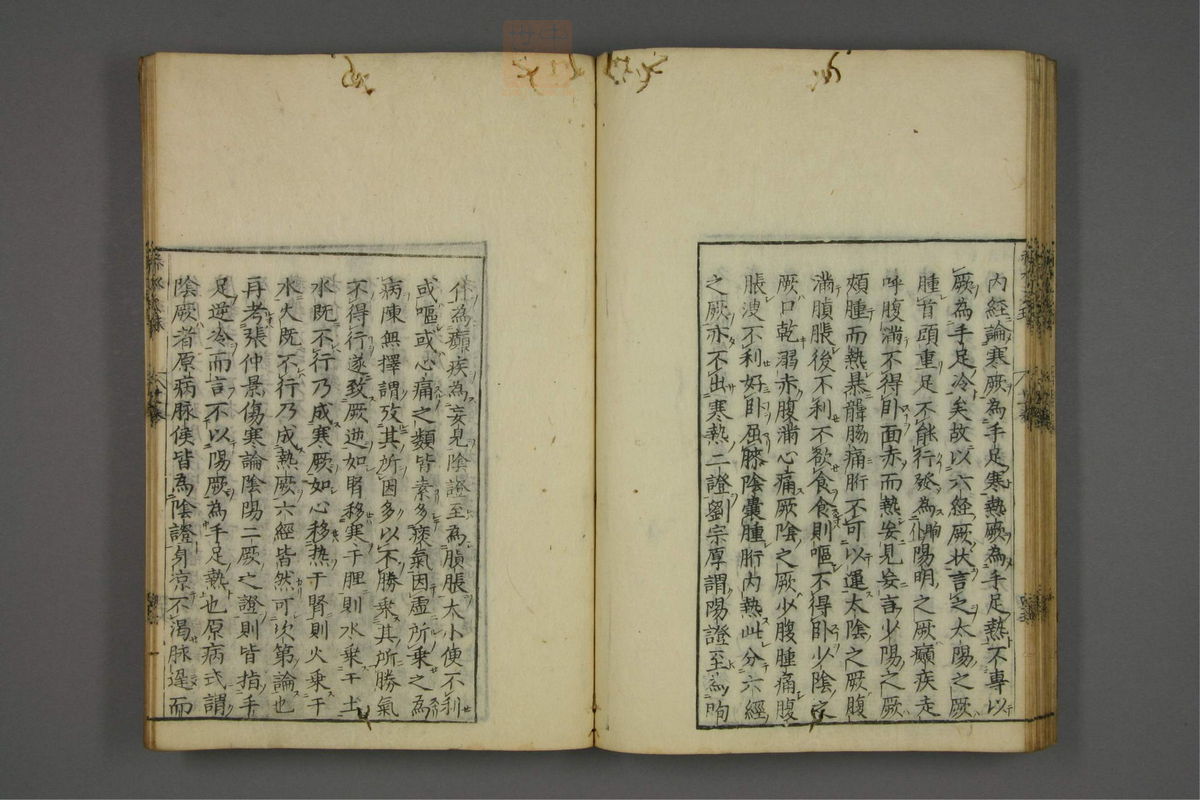 內經論寒厥為手足寒熱厥為手足熱不專以
厥為手足冷矣故以六經厥状言之太陽之厥
腫首頭重足不能行發為眴仆陽明之厥癲疾走
呼腹滿不得臥面赤而熱妄見妄言少陽之厥
頰腫而熱暴聾脇痛胻不可以運太陰之厥腹
滿䐜脹後不利不欲食食則嘔不得臥少陰之
厥口乾溺赤腹滿心痛厥陰之厥少腹腫痛腹
脹溲不利好卧屈膝陰囊腫胻內熱此分六經
之厥亦不出寒熱二證劉宗厚謂陽證至為眴
仆為癲疾為妄見陰證至為䐜脹大小便不利
或嘔或心痛之類皆素多痰氣因虛所乘之為
病陳無擇謂攷其所因多以不勝乘其所勝氣
不得行遂致厥逆如腎移寒于脾則水乘于土
水既不行乃成寒厥如心移热于腎則火乘于
水火既不行乃成熱厥六經皆然可次第論也
再考張仲景傷寒論陰陽二厥之證則皆指手
足逆冷而言不以陽厥為手足熱也原病式謂
陰厥者原病脉候皆為陰證身凉不渴脉遲而